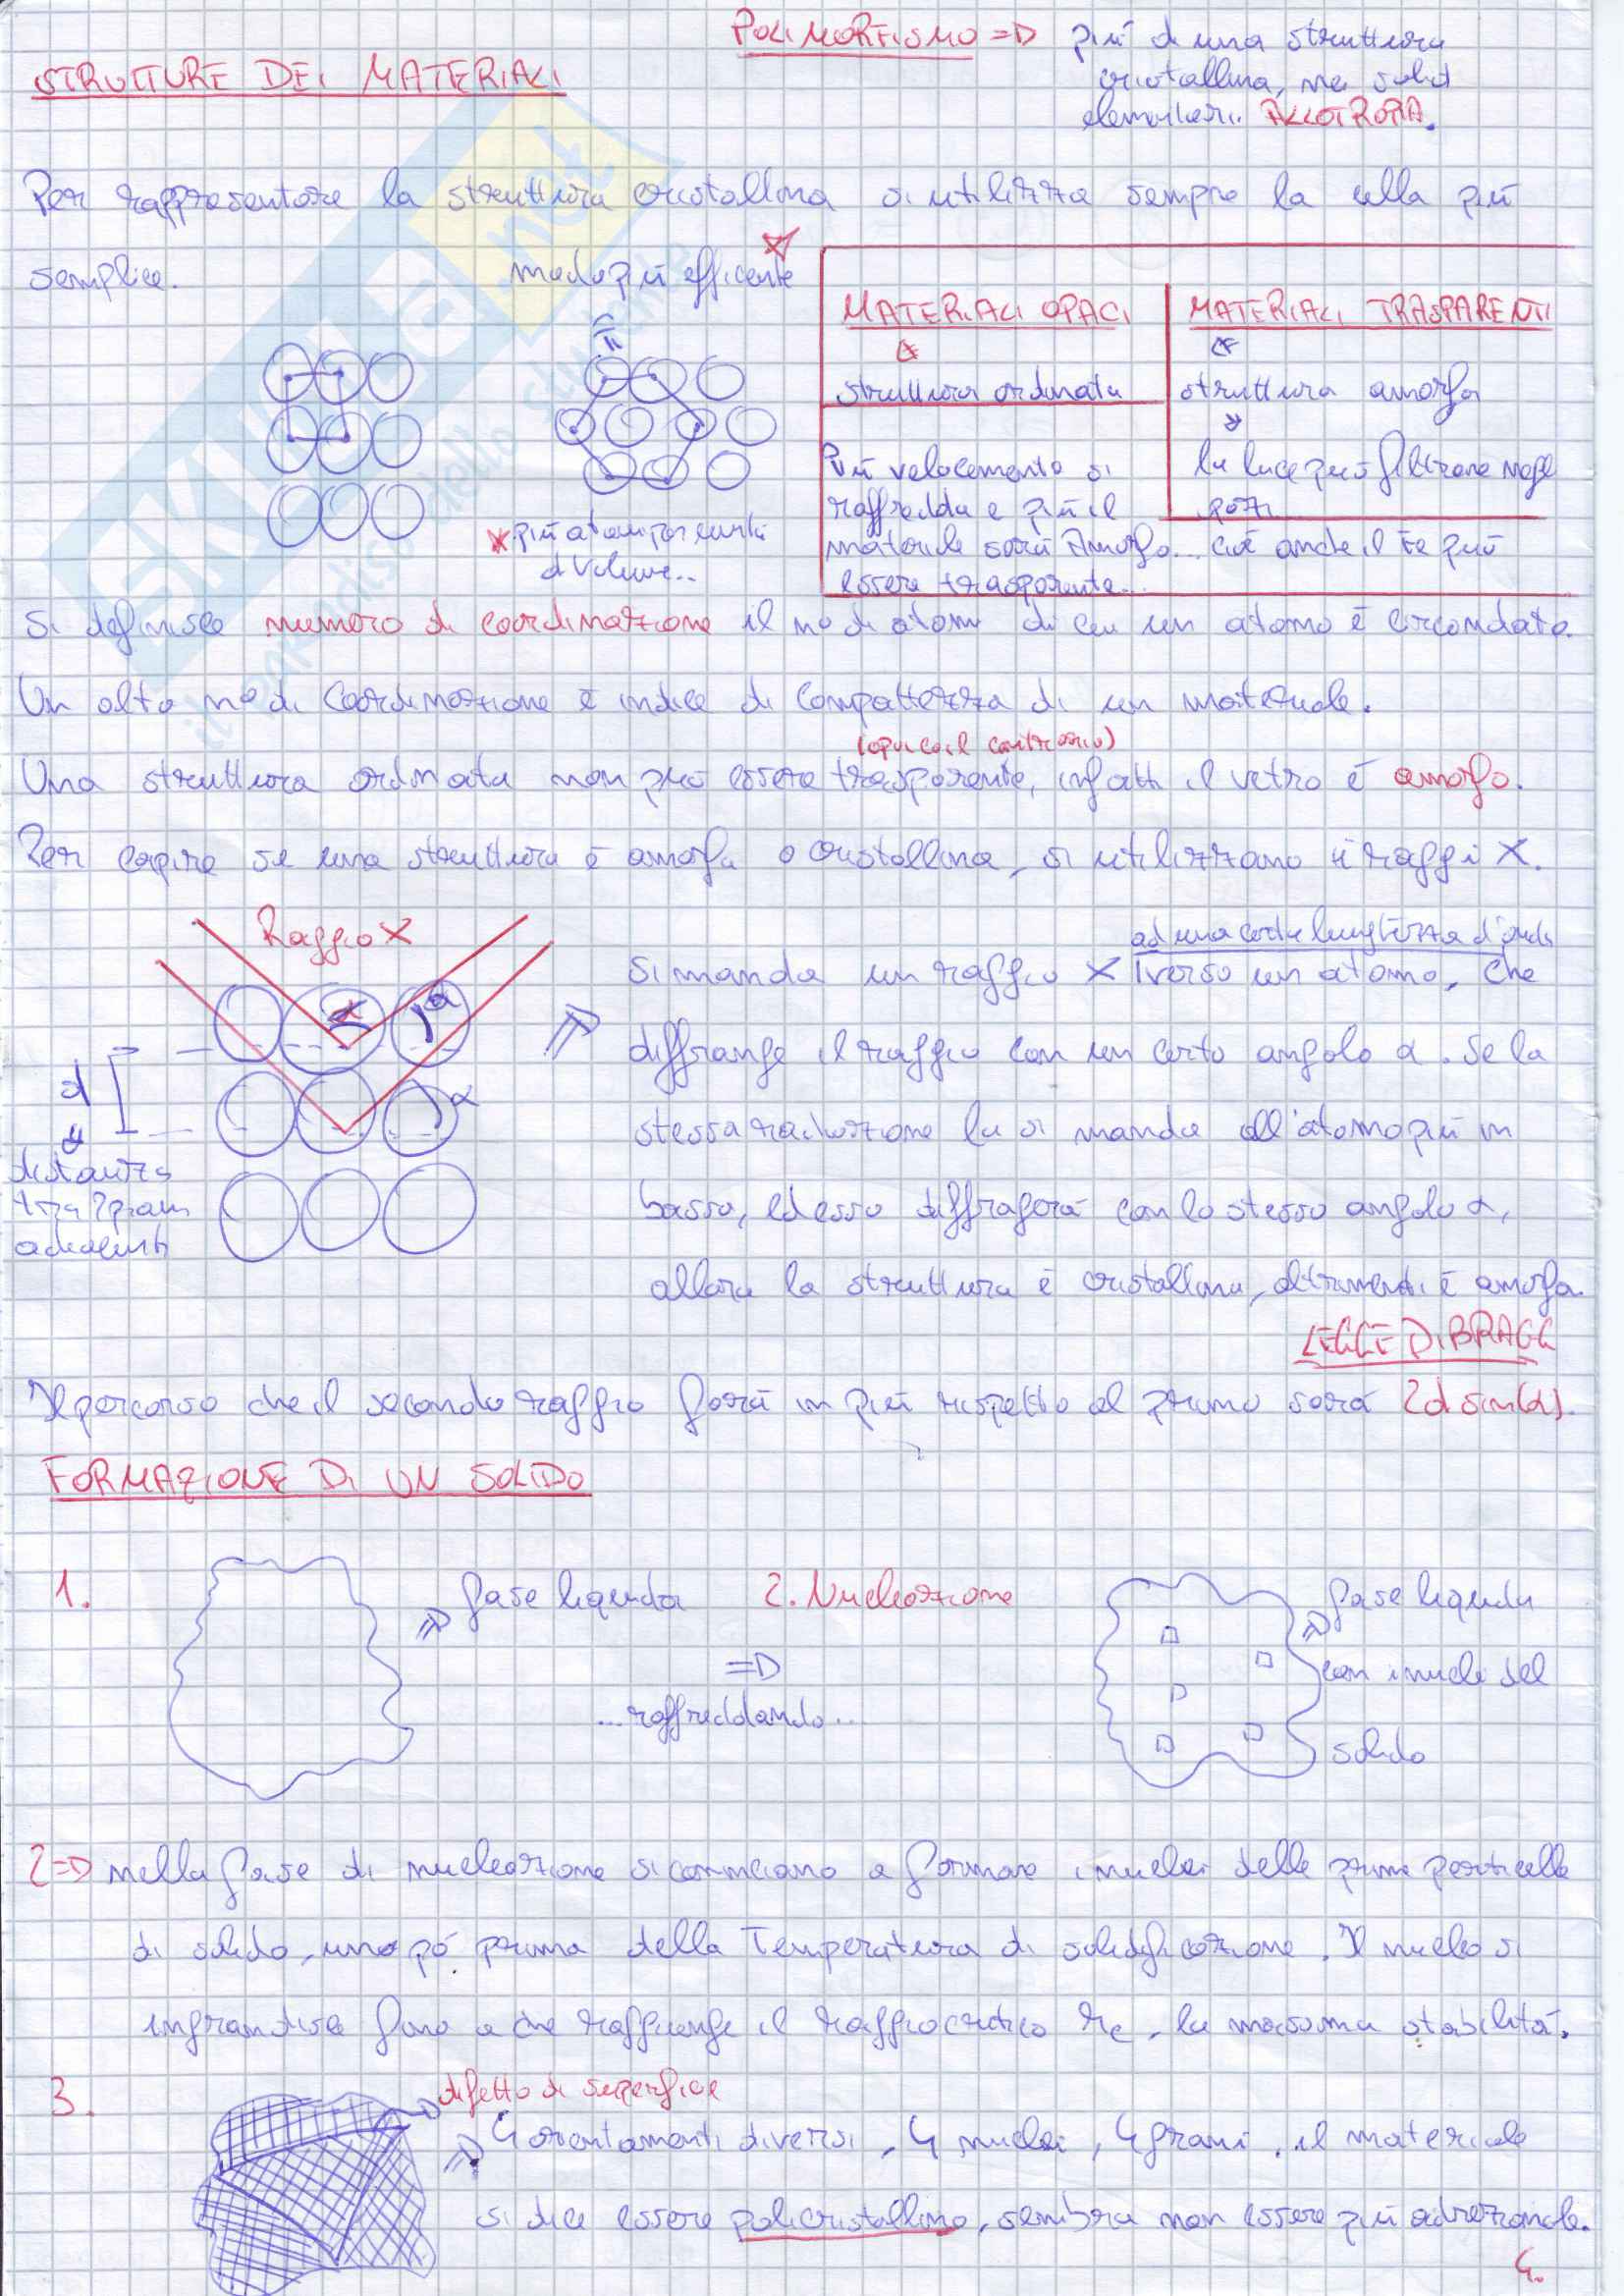 POLIMORFISMO => più di una struttura
cristallina, nei solidi
elementari. ALLOTROPIA.
STRUTTURE DEI MATERIALI
Per rappresentare la struttura cristallina si utilizza sempre la cella più
semplice.
modo più efficente
MATERIALI OPACI
struttura ordinata
MATERIALI TRASPARENTI
struttura amorfa
la luce può filtrare negli
spazi
Più velocemente si
raffredda e più il
materiale sarà Amorfo... cioè anche il Fe può
essere trasparente...
* più atomi per unità
di Volume..
Si definisce numero di coordinazione il no di atomi di cui un atomo è circondato.
Un alto no di Coordinazione è indice di compattezza di un materiale.
(opaco il contrario)
Una struttura ordinata non può essere trasparente, infatti il vetro è amorfo.
Per capire se una struttura è amorfa o cristallina, si utilizzano i raggi X.
Raggio X
α
α
α
d
distanza
tra 2 piani
adiacenti
ad una certa lunghezza d'onda
Si manda un raggio X verso un atomo, che
diffrange il raggio con un certo angolo α. Se la
stessa radiazione la si manda all'atomo più in
basso, ed esso diffragerà con lo stesso angolo α,
allora la struttura è cristallina, altrimenti è amorfa.
LEGGE DI BRAGG
Il percorso che il secondo raggio farà in più rispetto al primo sarà 2d sin(α).
FORMAZIONE DI UN SOLIDO
1.
fase liquida
2. Nucleazione
=>
...raffreddando...
fase liquida
con i nuclei del
solido
2=> nella fase di nucleazione si cominciano a formare i nuclei delle prime particelle
di solido, uno pò prima della Temperatura di solidificazione. Il nucleo si
ingrandisce fino a che raggiunge il raggio critico rc, la massima stabilità.
3.
difetto di superficie
4 orientamenti diversi, 4 nuclei, 4 grani, il materiale
si dice essere policristallino, sembra non essere più
4.
SKUOLA.net
il paradiso dello studente